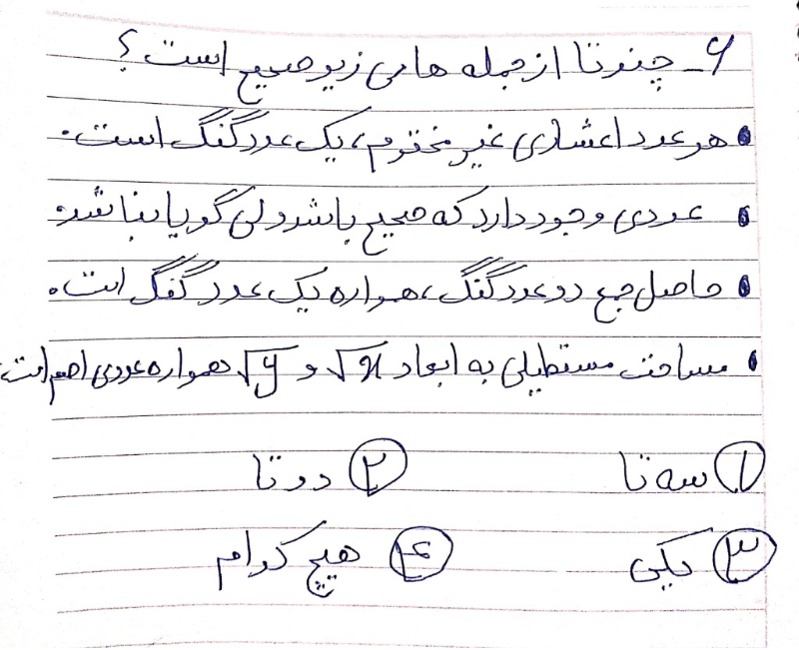 ۶_ چندتا از جمله های زیر صحیح است؟
• هر عدد اعشاری غیر مختوم، یک عدد گنگ است.
• عددی وجود دارد که صحیح باشد ولی گویا نباشد.
• حاصل جمع دو عدد گنگ، همواره یک عدد گنگ است.
• مساحت مستطیلی به ابعاد √x و √y همواره عددی اصم است.
۱ سه تا ۲ دو تا
۳ یکی ۴ هیچ کدام